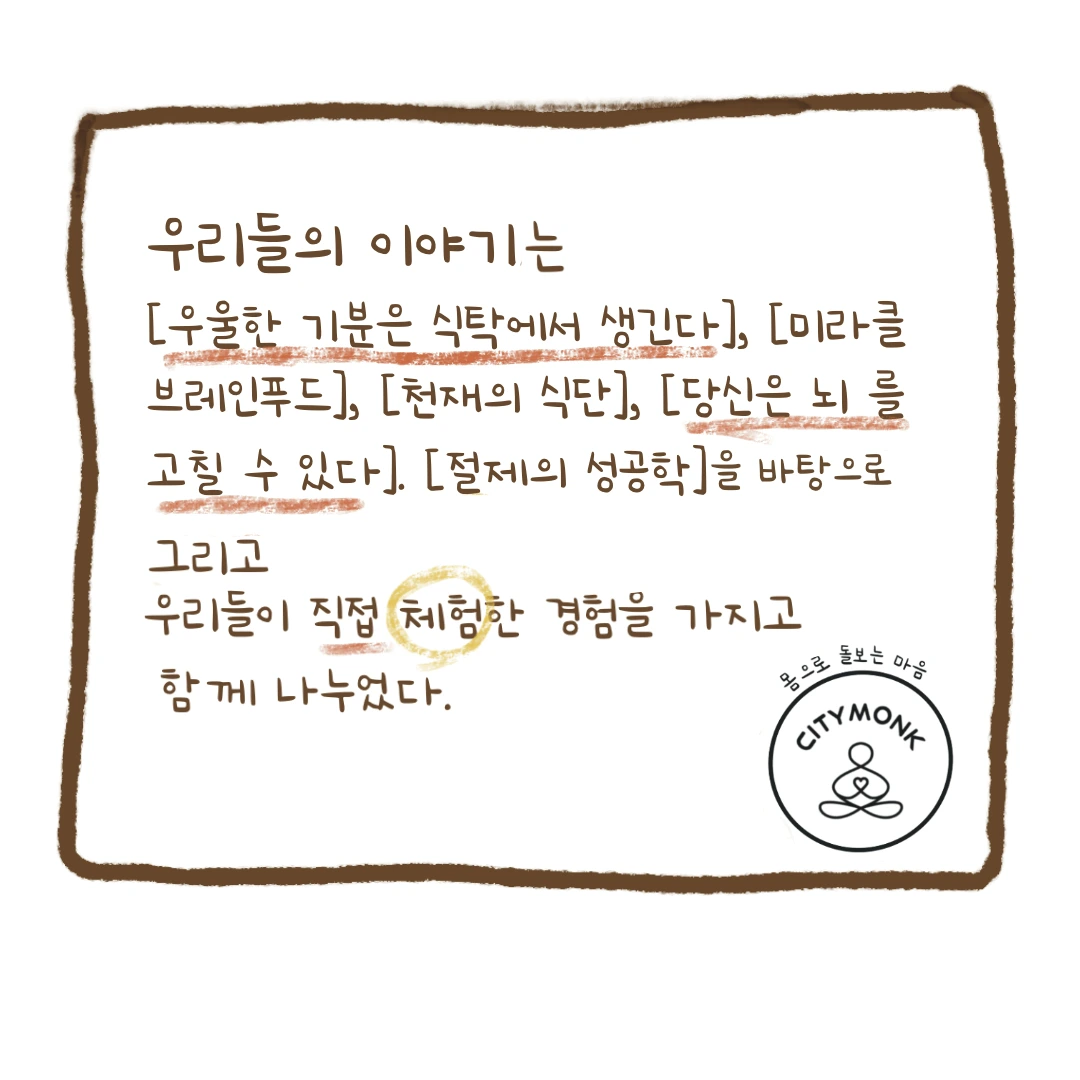 우리들의 이야기는
[우울한 기분은 식탁에서 생긴다], [미라클
브레인푸드], [천재의 식단], [당신은 뇌 를
고칠 수 있다]. [절제의 성공학]을 바탕으로
그리고
우리들이 직접 체험한 경험을 가지고
함께 나누었다.
몸으로 돌보는 마음
CITYMONK